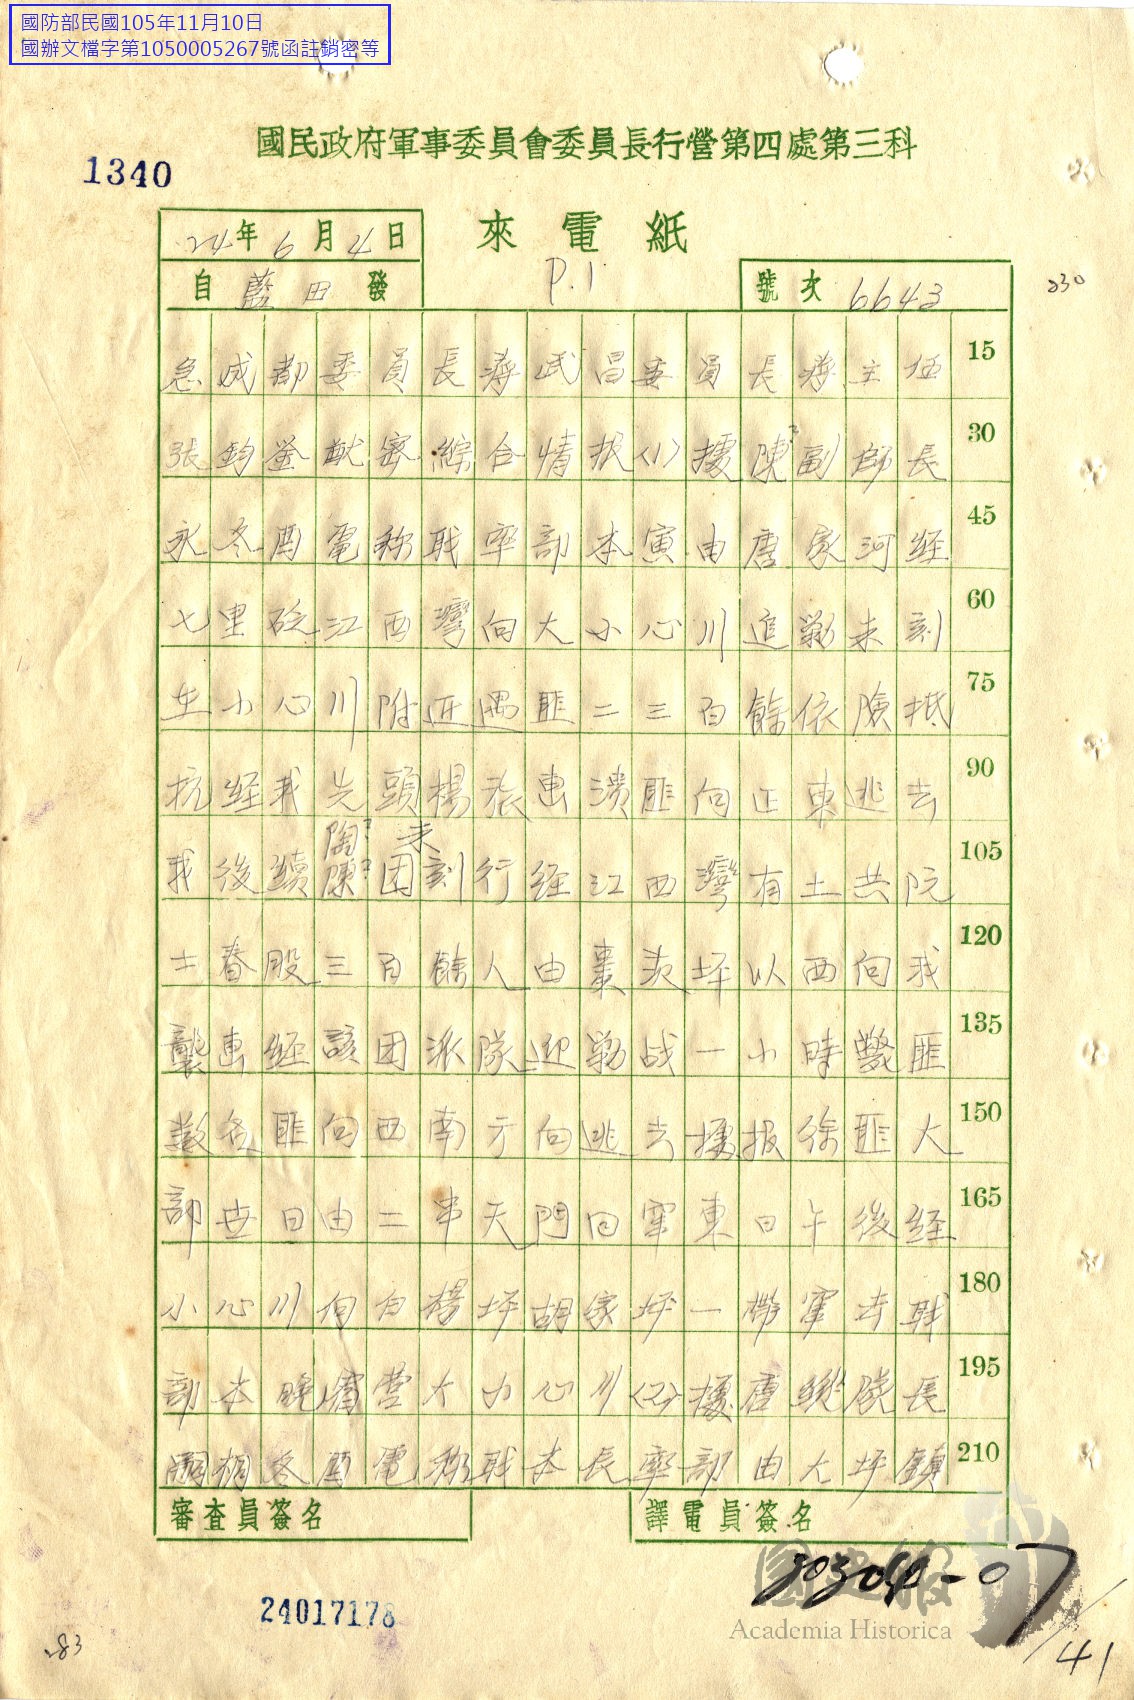 國防部民國105年11月10日
國辦文檔字第1050005267號函註銷密等
國民政府軍事委員會委員長行營第四處第三科
1340
24年6月4日
來電紙
自藍田發
P.1
號次 6643
230
急成都委員長蔣武昌委員長蔣主任 15
張鈞鑒猷密綜合情报(1)據陳?副師長 30
永冬酉電称职率部本寅由唐家河经 45
七里砭江西灣向大小心川追勦未刻 60
在小心川附近遇匪二三百餘依險抵 75
抗经我先頭楊张惠潰匪向正東逃去 90
陶? 未
我後續陳?团刻行经江西灣有土共阮 105
士春股三百餘人由棗灰坪以西向我 120
襲惠经該团派隊迎勦战一小時斃匪 135
数名匪向西南方向逃去據报徐匪大 150
部世日由二軍天門回窜東日午後经 165
小心川向白楊坪胡家坪一帶窜去职 180
部本晚宿营大小心川(2)據唐縱隊長 195
嗣桐冬酉電称职本長率部由大坪鎮 210
審查員簽名
譯電員簽名
24017178
Academia Historica
283
41